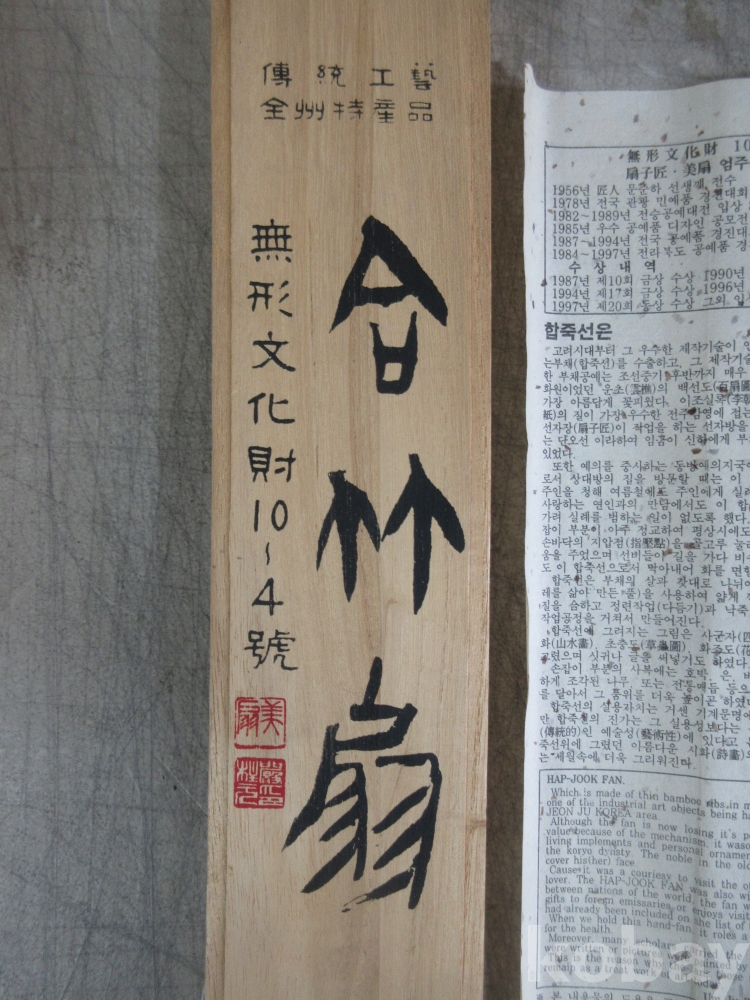 傳統工藝
全州特産品
合竹扇
無形文化財10~4號
美扇
無形文化財 10
扇子匠·美扇 엄주
1956년 匠人 문준하 선생께 전수
1978년 전국 관광 민예품 경진대회
1982~1989년 전승공예대전 입상
1985년 우수 공예품 디자인 공모전
1987~1994년 전국 공예품 경진대
1984~1997년 전라북도 공예품 경
수상내역
1987년 제10회 금상 수상 1990년
1994년 제17회 금상 수상 1996년
1997년 제20회 동상 수상 그외 입
합죽선은
고려시대부터 그 우수한 제작기술이
는부채(합죽선)를 수출하고, 그 제작기술
한 부채공예는 조선중기 후반까지 매우
화원이었던 '운초'(雲樵)의 백선도(百扇圖
가장 아름답게 꽃피웠다. 이조실록(李朝
紙)의 질이 가장 우수한 전주감영에 접는
선자장(扇子匠)이 작업을 하는 선자방을
는 단오선 이라하여 임금이 신하에게 부
있었다.
또한 예의를 중시하는 동방예의지국에
로서 상대방의 집을 방문할 때는 이
주인을 청해 여름철에도 주인에게 실례
사랑하는 연인과의 만남에서도 이 합
가려 실례를 범하는 일이 없도록 했다
잡이 부분이 아주 정교하여 평상시에도
손바닥의 지압점(指壓點)을 골고루 눌러
움을 주었으며 선비들이 길을 가다 비
도 이 합죽선으로 막아내어 화를 면한
합죽선은 부채의 살과 갓대로 나뉘어
레를 삶아 만든 풀)을 사용하여 얇게
질을 슴하고 정련작업(다듬기)과 낙죽
작업공정을 거쳐서 만들어진다.
합죽선에 그려지는 그림은 사군자(四
화(山水畵), 초충도(草蟲圖), 화죽도(花
그렸으며 싯귀나 글을 써넣기도 하였다
손잡이 부분의 사복에는 호박 은 비
하게 조각된 나무 또는 전통매듭 등으
를 달아서 그 품위를 더욱 높이곤 하였다
합죽선의 실용가치는 거센 기계문명
만 합죽선의 진가는 그 실용성보다는
(傳統的)인 예술성(藝術性)에 있다고
죽선위에 그렸던 아름다운 시화(詩畵)
는 세월속에 더욱 그리워진다.
HAP-JOOK FAN.
Which is made of thin bamboo ribs.in m
one of the industrial art objects being ha
JEON JU KOREA area
Although the fan is now losing it's p
value because of the mechanism, it waso
living implements and personal ornamer
the koryo dyasty. The noble in the old
cover his(her) face
Cause it was a couriesy to visit the
lover. The HAP-JOOK FAN was also wi
between nations of the world, the fan w
gifts to foregn emissaries or enjoys visit
had already been included on the list of
When we hold this hand-fan, it roles a
for the health.
Moreover, many scholar carried the
were written or pictures were painted by
This is the reason why the
remain as a treat work
kobay